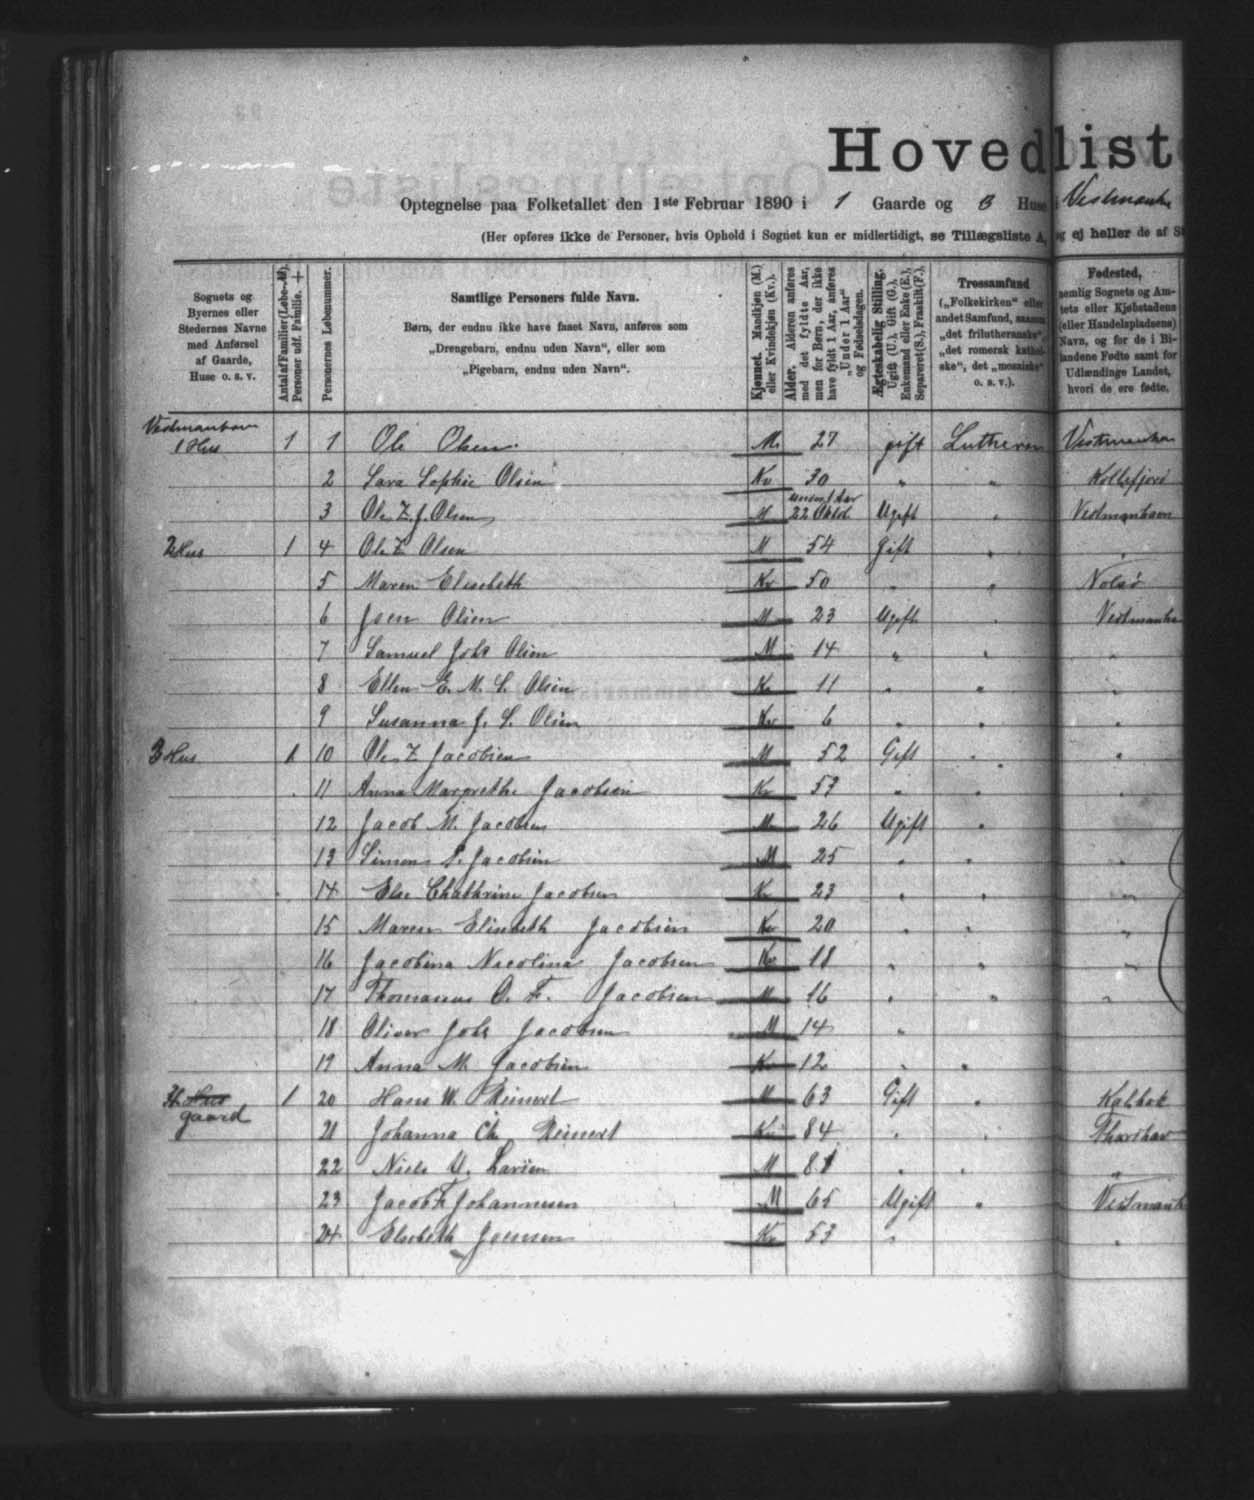 Hovedlist
Optegnelse paa Folketallet den 1ste Februar 1890 i 1 Gaarde og 3 Huse i Vestmanha
(Her opføres ikke de Personer, hvis Ophold i Sognet kun er midlertidigt, se Tillægsliste A, og ej heller de af St
Sognets og Byernes eller Stedernes Navne med Anførsel af Gaarde, Huse o. s. v.
Antal af Familier (Løbe-№). Personer udf. Familie. +
Personernes Løbenummer.
Samtlige Personers fulde Navn.
Børn, der endnu ikke have faaet Navn, anføres som
„Drengebarn, endnu uden Navn“, eller som
„Pigebarn, endnu uden Navn“.
Kjønnet. Mandkjøn (M.) eller Kvindekjøn (Kv.).
Alder. Alderen anføres med det fyldte Aar, men for Børn, der ikke have fyldt 1 Aar, anføres „Under 1 Aar“ og Fødselsdagen.
Ægteskabelig Stilling. Ugift (U.), Gift (G.), Enkemand eller Enke (E.), Separeret (S.), Fraskilt (F.).
Trossamfund („Folkekirken“ eller andet Samfund, saasom „det frilutheranske“, „det romersk kathol- ske“, det „mosaiske“ o. s. v.).
Fødested, nemlig Sognets og Am- tets eller Kjøbstadens (eller Handelspladsens) Navn, og for de i Bi- landene Fødte samt for Udlændinge Landet, hvori de ere fødte.
Vestmanhavn
1 Hus 1 1 Ole Olsen M. 27 gift Lutheran Vestmanha
2 Sara Sophie Olsen Kv 30 " " Kollefjord
3 Ole Z. J. Olsen M under 1 Aar 22 Oktd Ugift " Vestmanhavn
2 Hus 1 4 Ole Z Olsen M 54 Gift " "
5 Maren Elisebeth Kv 50 " " Nolsø
6 Joen Olsen M 23 Ugift " Vestmanha
7 Samuel Johs Olsen M 14 " " "
8 Ellen E. M. S. Olsen Kv 11 " " "
9 Susanna J. S. Olsen Kv 6 " " "
3 Hus 1 10 Ole Z Jacobsen M 52 Gift " "
11 Anna Margrethe Jacobsen Kv 57 " " "
12 Jacob M. Jacobsen M 26 Ugift " "
13 Simon S. Jacobsen M 25 " " "
14 Else Chathrine Jacobsen Kv 23 " " "
15 Maren Elisebeth Jacobsen Kv 20 " " "
16 Jacobina Nicolina Jacobsen Kv 18 " " "
17 Thomasius O. F. Jacobsen M 16 " " "
18 Oliver Johs Jacobsen M 14 "
19 Anna M. Jacobsen Kv 12 " "
Hus gaard 1 20 Hans W. Reinert M 63 Gift " Kalbak
21 Johanna Ch Reinert Kv 84 " " Thorshav
22 Niels U. Larsen M 81 " " "
23 Jacob F. Johannesen M 65 Ugift " Vestmanh
24 Elsebeth Joensen Kv 53 " "